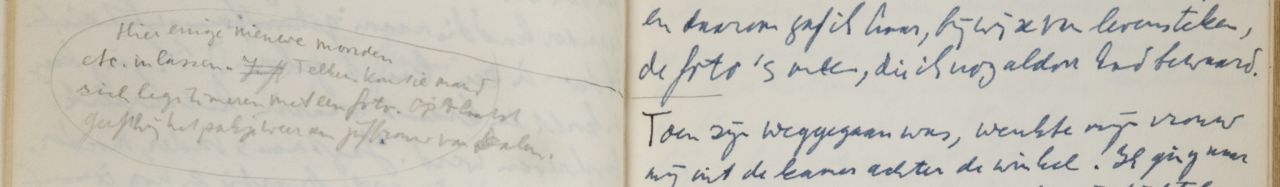 Hier enige nieuwe moorden
etc. inlassen. Juff Telkens kan niemand
zich legitimeren met een foto. Op 't laatst
geeft hij het pakje weer aan juffrouw van Dalen.
en daarom gaf ik haar, bij wijze van levensteken,
de foto's, die ik nog aldoor had bewaard.
Toen zij weggegaan was, wenkte mijn vrouw
mij uit de kamer achter de winkel. Ik ging naar